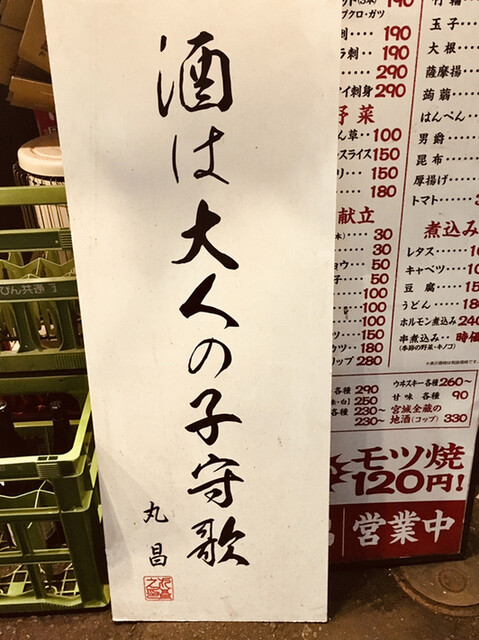 酒は大人の子守歌
丸昌
玉子
大根
薩摩揚
蒟蒻
はんぺん
男爵
昆布
厚揚げ
トマト
煮込み
レタス
キャベツ
豆腐
うどん 180
ホルモン煮込み 240
串煮込み 時価
(季節の野菜・キノコ)
プクロ・ガツ
刺 190
ラ刺 190
290
イ刺身 290
野菜
ん草 100
スライス 150
リ 150
180
献立
30
30
ョウ 50
子 50
100
100
100
ツ 150
カツ 180
ップ 280
各種 290
白】250
各種 230~
230~
ウヰスキー各種 260~
甘味各種 90
宮城全蔵の
地酒(コップ) 330
モツ焼
120円!
営業中